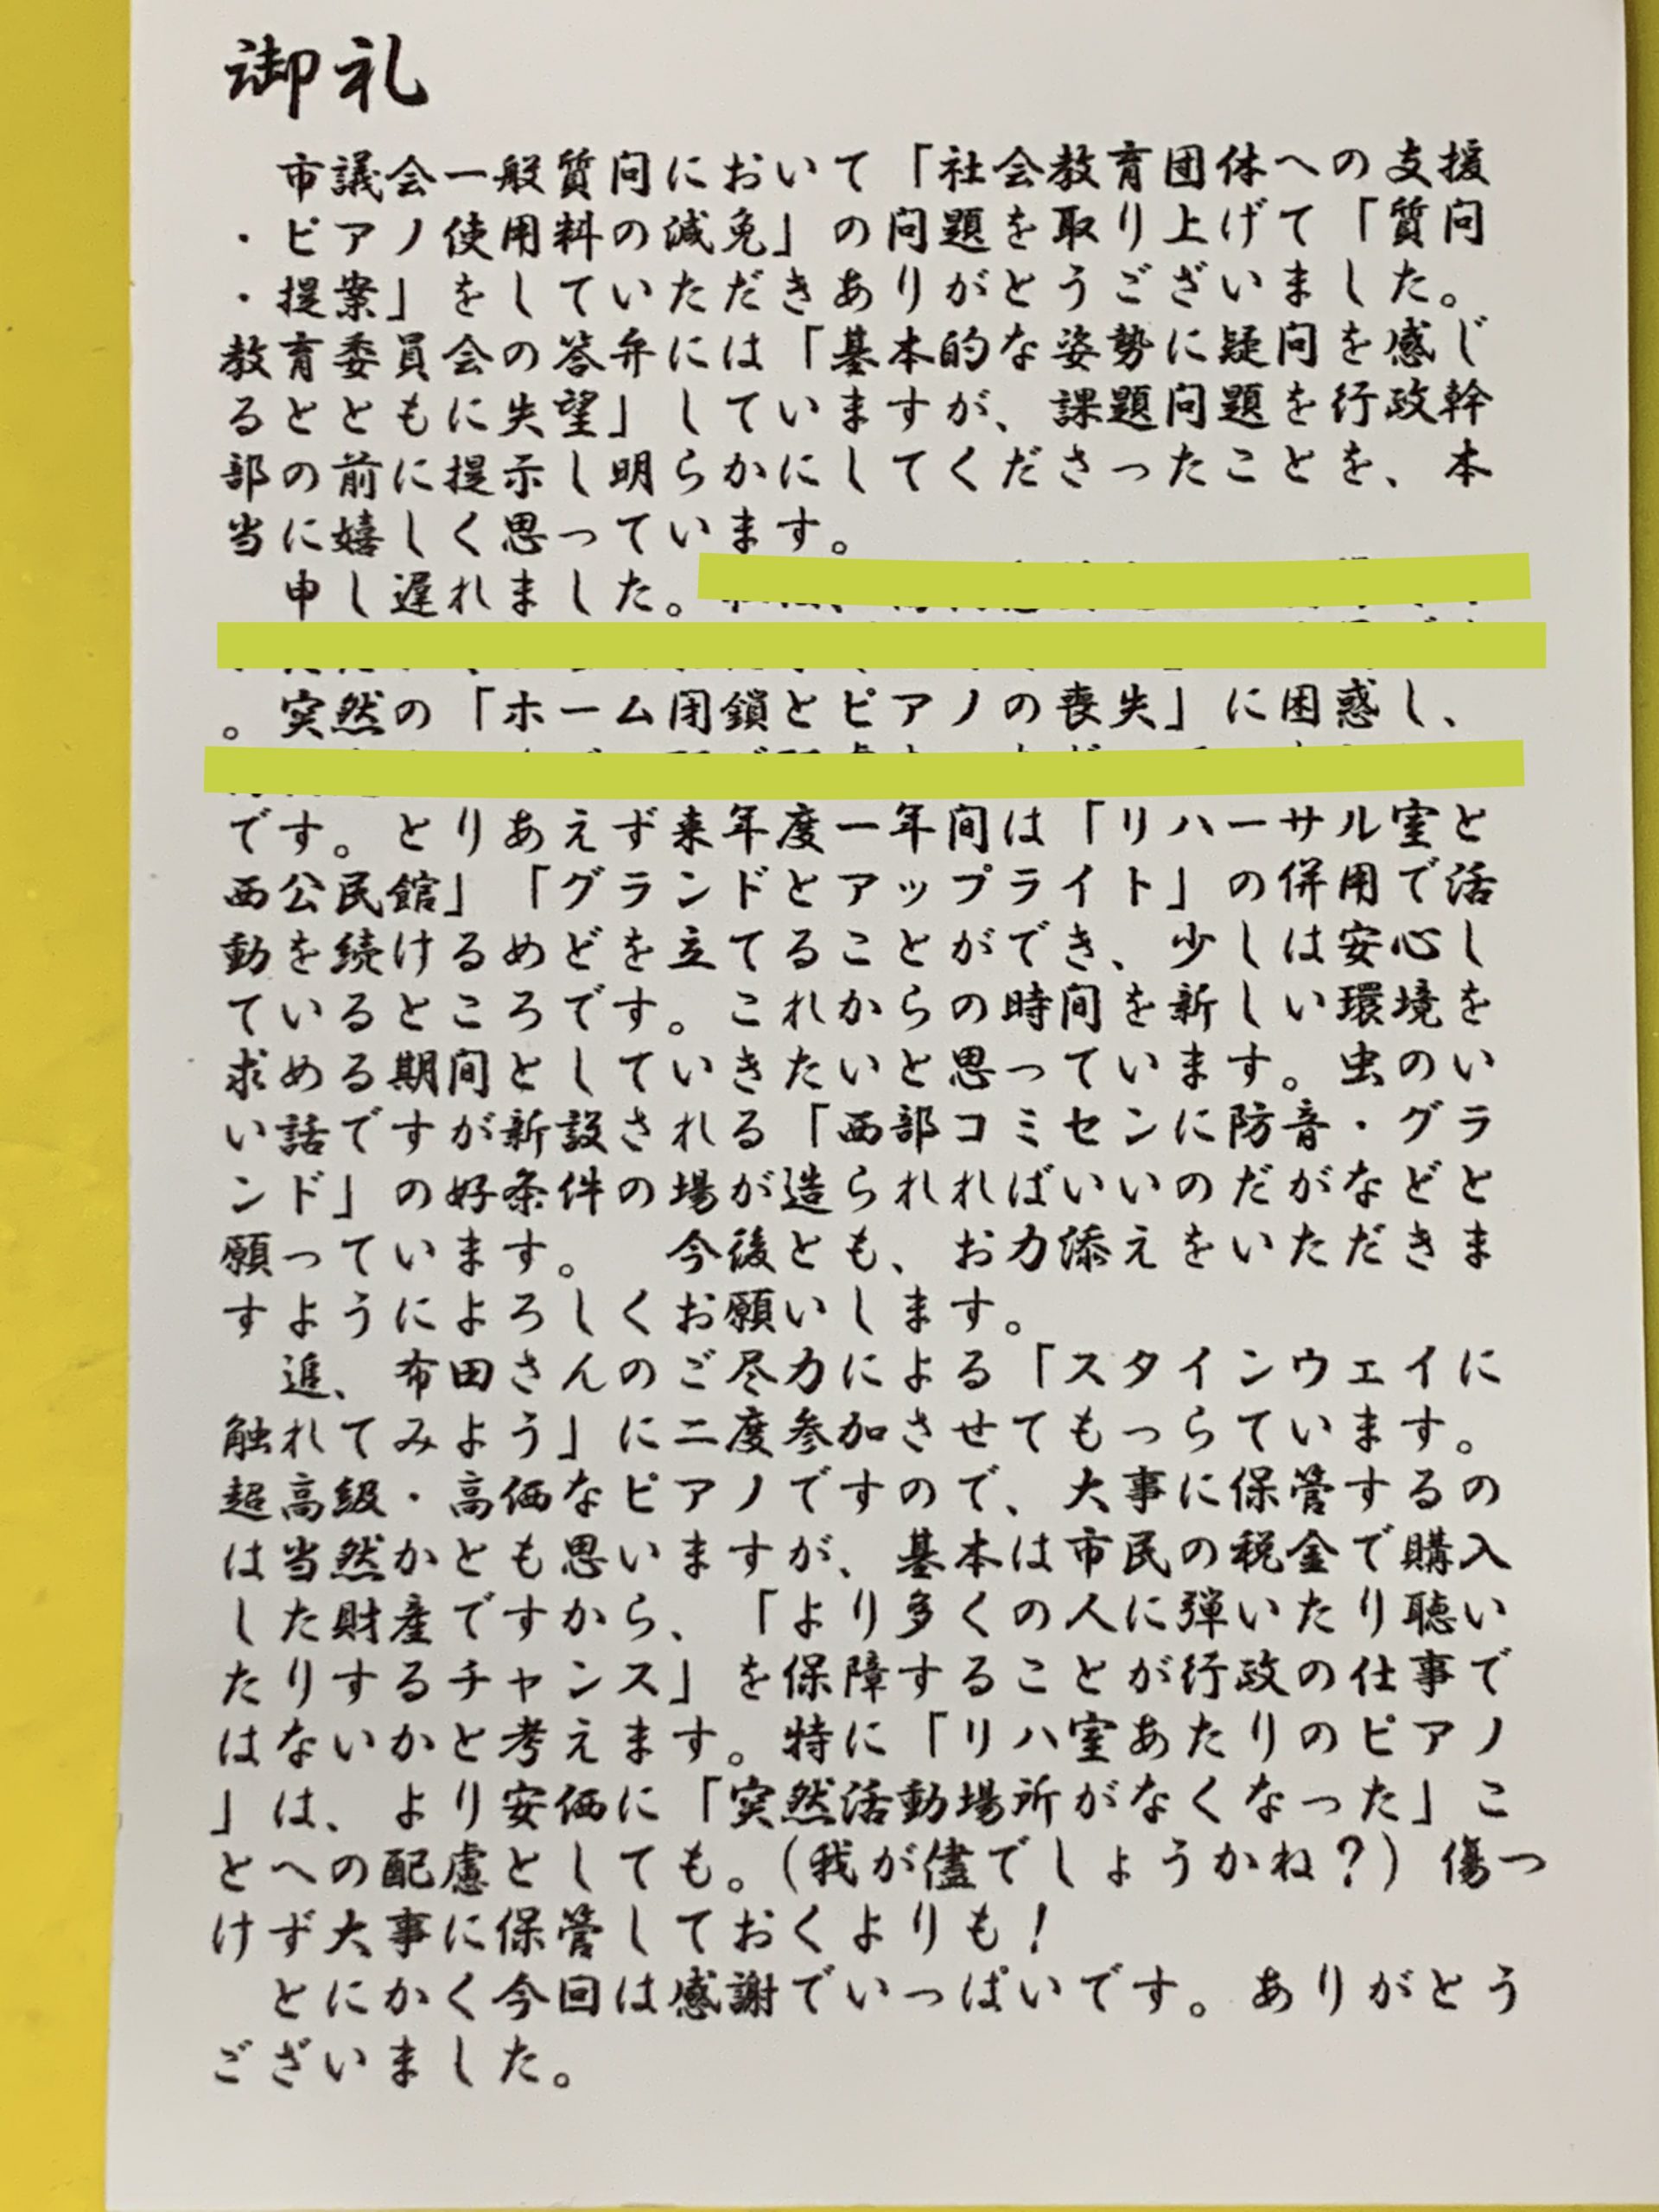 御礼
市議会一般質問において「社会教育団体への支援
・ピアノ使用料の減免」の問題を取り上げて「質問
・提案」をしていただきありがとうございました。
教育委員会の答弁には「基本的な姿勢に疑問を感じ
るとともに失望」していますが、課題問題を行政幹
部の前に提示し明らかにしてくださったことを、本
当に嬉しく思っています。
申し遅れました。
。突然の「ホーム閉鎖とピアノの喪失」に困惑し、
です。とりあえず来年度一年間は「リハーサル室と
西公民館」「グランドとアップライト」の併用で活
動を続けるめどを立てることができ、少しは安心し
ているところです。これからの時間を新しい環境を
求める期間としていきたいと思っています。虫のい
い話ですが新設される「西部コミセンに防音・グラ
ンド」の好条件の場が造られればいいのだがなどと
願っています。　今後とも、お力添えをいただきま
すようによろしくお願いします。
追、布田さんのご尽力による「スタインウェイに
触れてみよう」に二度参加させてもっらています。
超高級・高価なピアノですので、大事に保管するの
は当然かとも思いますが、基本は市民の税金で購入
した財産ですから、「より多くの人に弾いたり聴い
たりするチャンス」を保障することが行政の仕事で
はないかと考えます。特に「リハ室あたりのピアノ
」は、より安価に「突然活動場所がなくなった」こ
とへの配慮としても。(我が儘でしょうかね?)傷つ
けず大事に保管しておくよりも!
とにかく今回は感謝でいっぱいです。ありがとう
ございました。